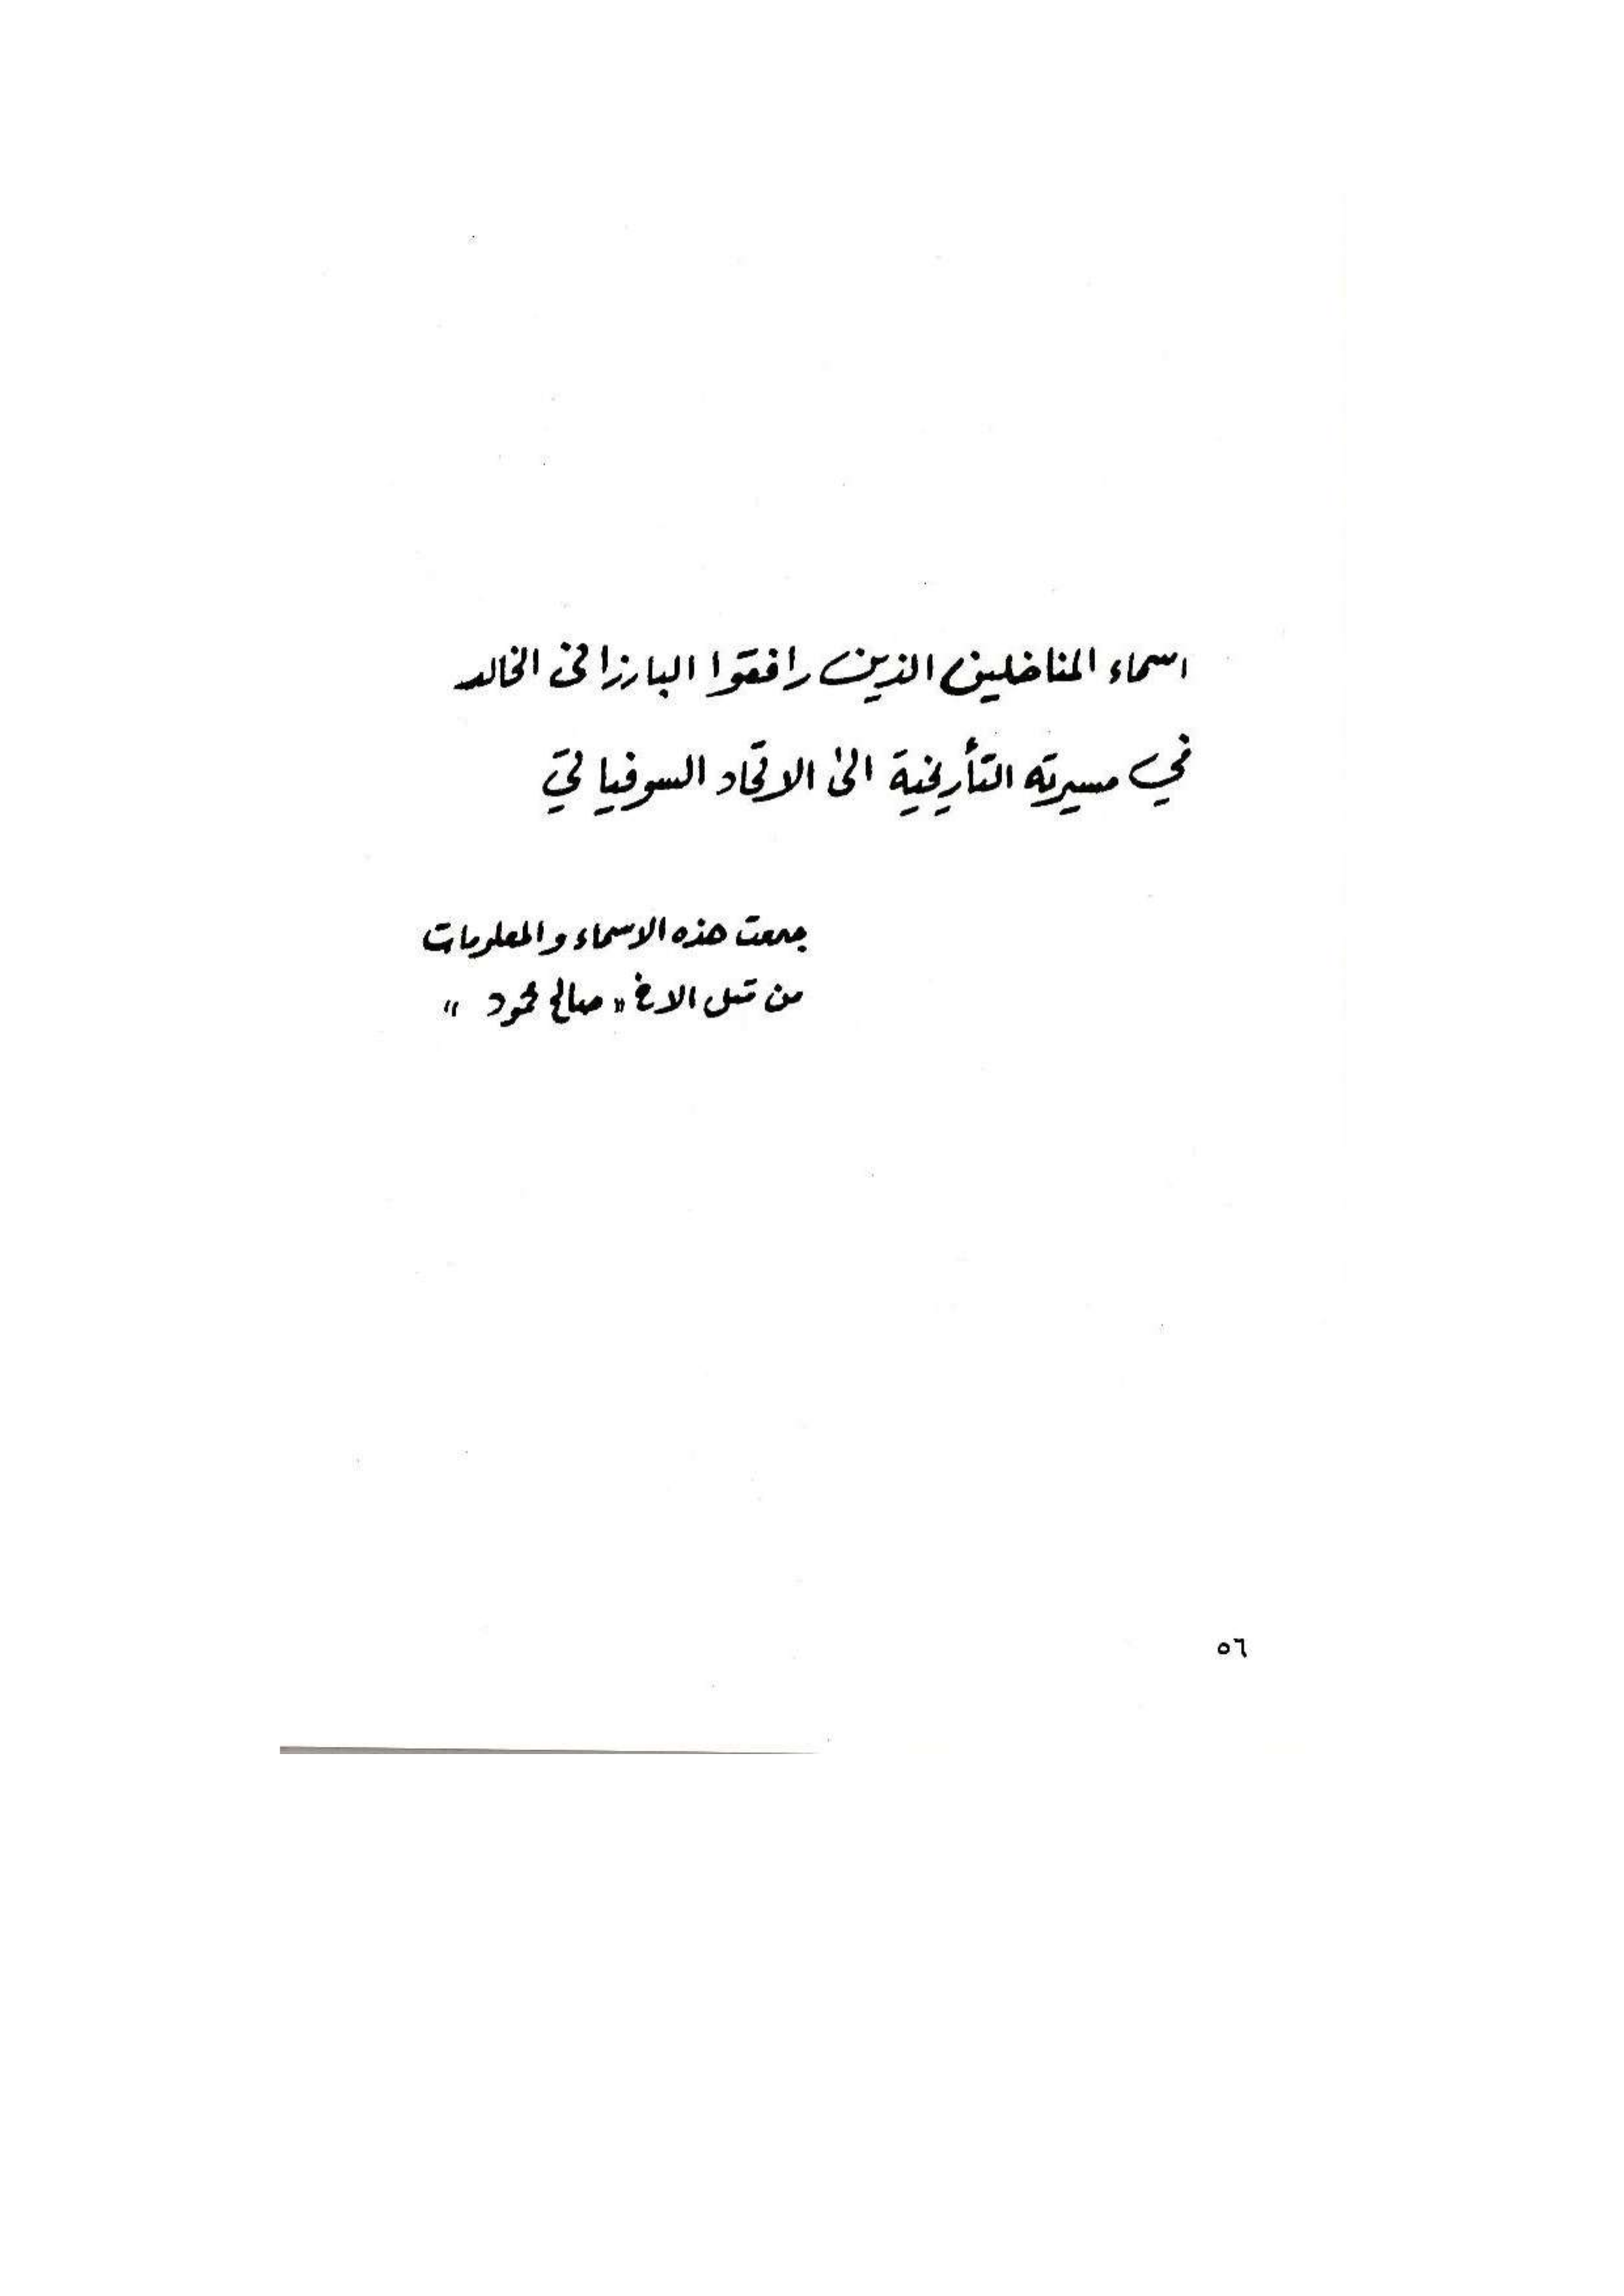 اسماء المناضلين الذين رافقوا البارزاني الخالد
في مسيرته التأريخية الى الاتحاد السوفياتي
جمعت هذه الاسماء والمعلومات
من قبل الاخ « صالح محمود »
٥٦